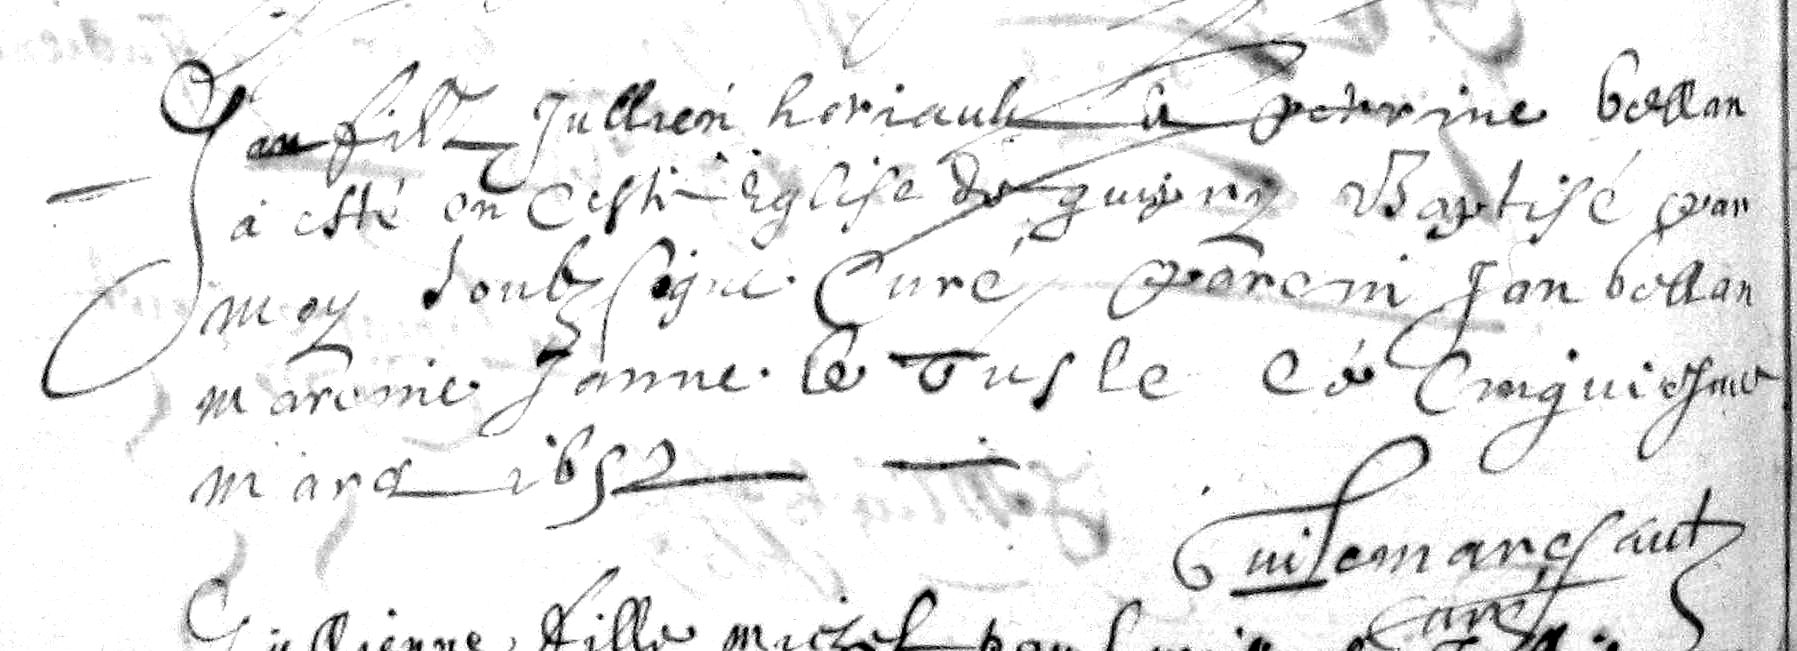 Jan filz Jullien horiault & perrine bellan
a esté en Ceste Eglise de guipry Baptisé par
moy soubz signé Curé parein Jan bellan
mareine Janne le Tusle Cé Cinquiesme
mars 1652
Guillemarchaut
Curé
Jullienne fille michel